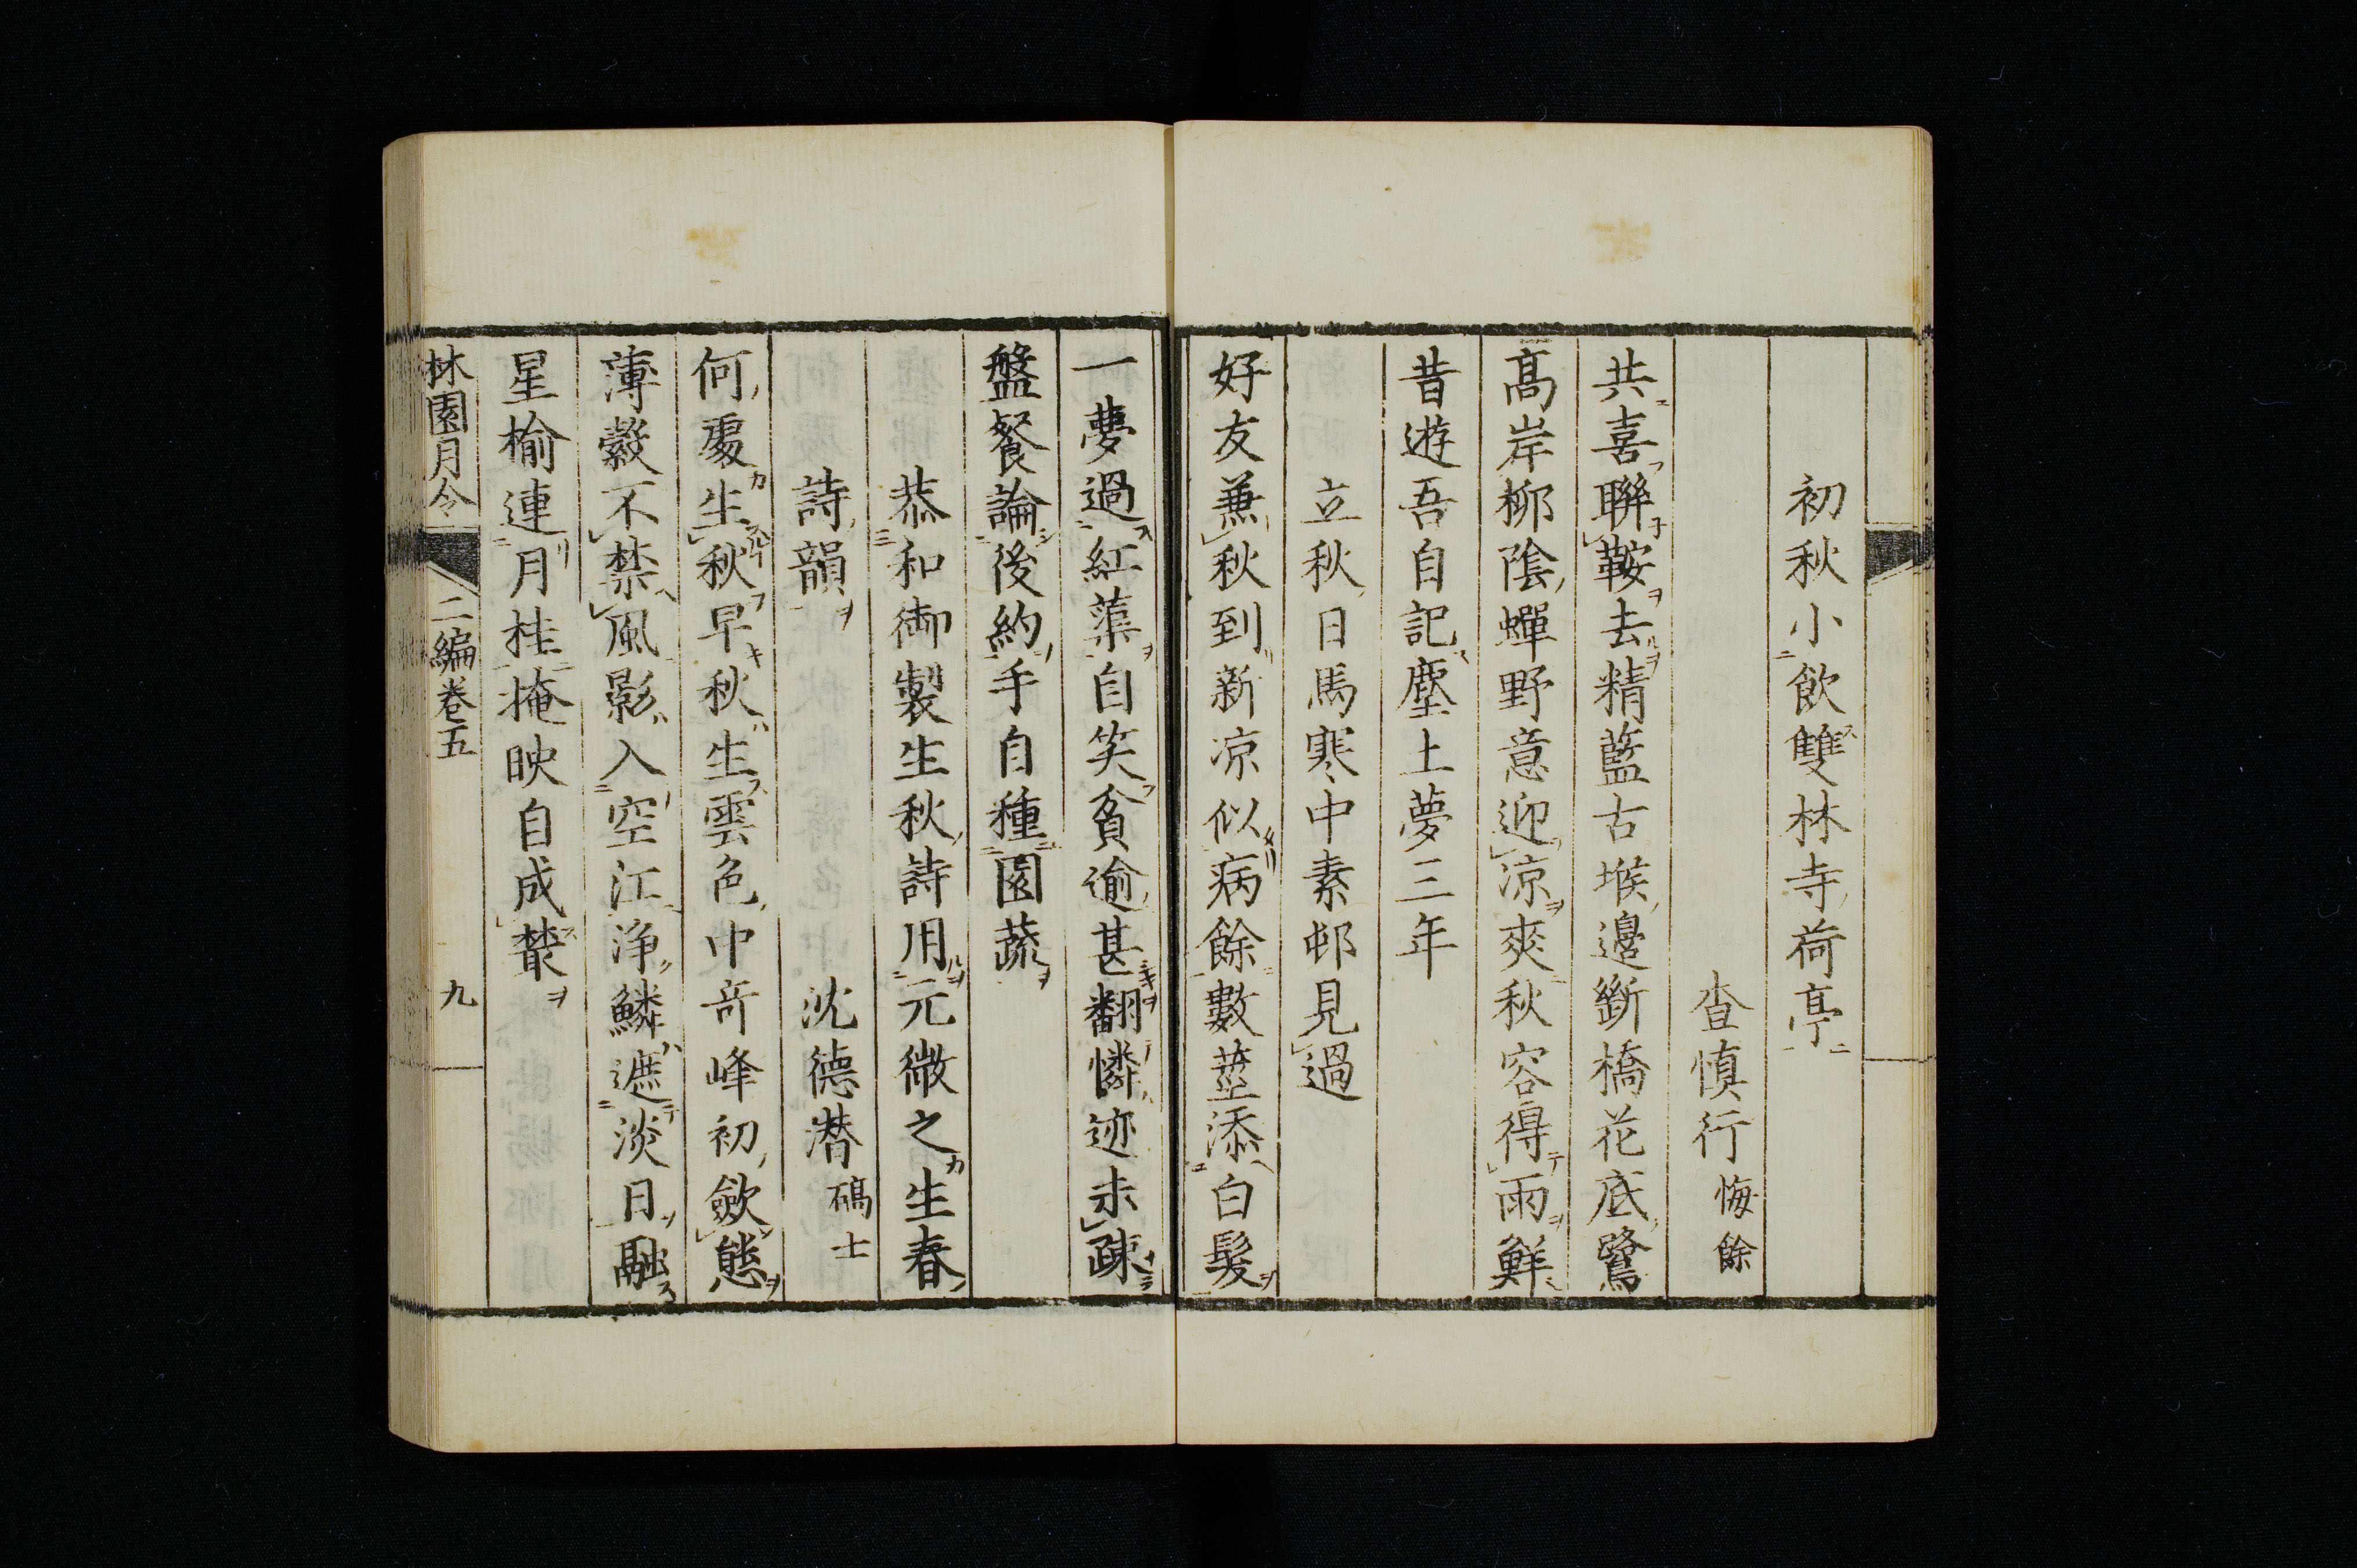 初秋小飲雙林寺荷亭
査慎行 悔餘
共喜聯鞍去精藍古堠邊斷橋花底鷺
髙岸柳陰蟬野意迎凉爽秋容得雨鮮
昔遊吾自記塵土夢三年
立秋日馬寒中素邨見過
好友兼秋到新凉似病餘數莖添白髮
一夢過紅蕖自笑貧逾甚翻憐迹未疎
盤餐論後約手自種園蔬
恭和御製生秋詩用元微之生春
詩韻 沈德潜 碻士
何處生秋早秋生雲色中竒峰初歛態
薄縠不禁風影入空江浄鱗遮淡日融
星榆連月桂掩映自成藂
林園月令 二編巻五 九